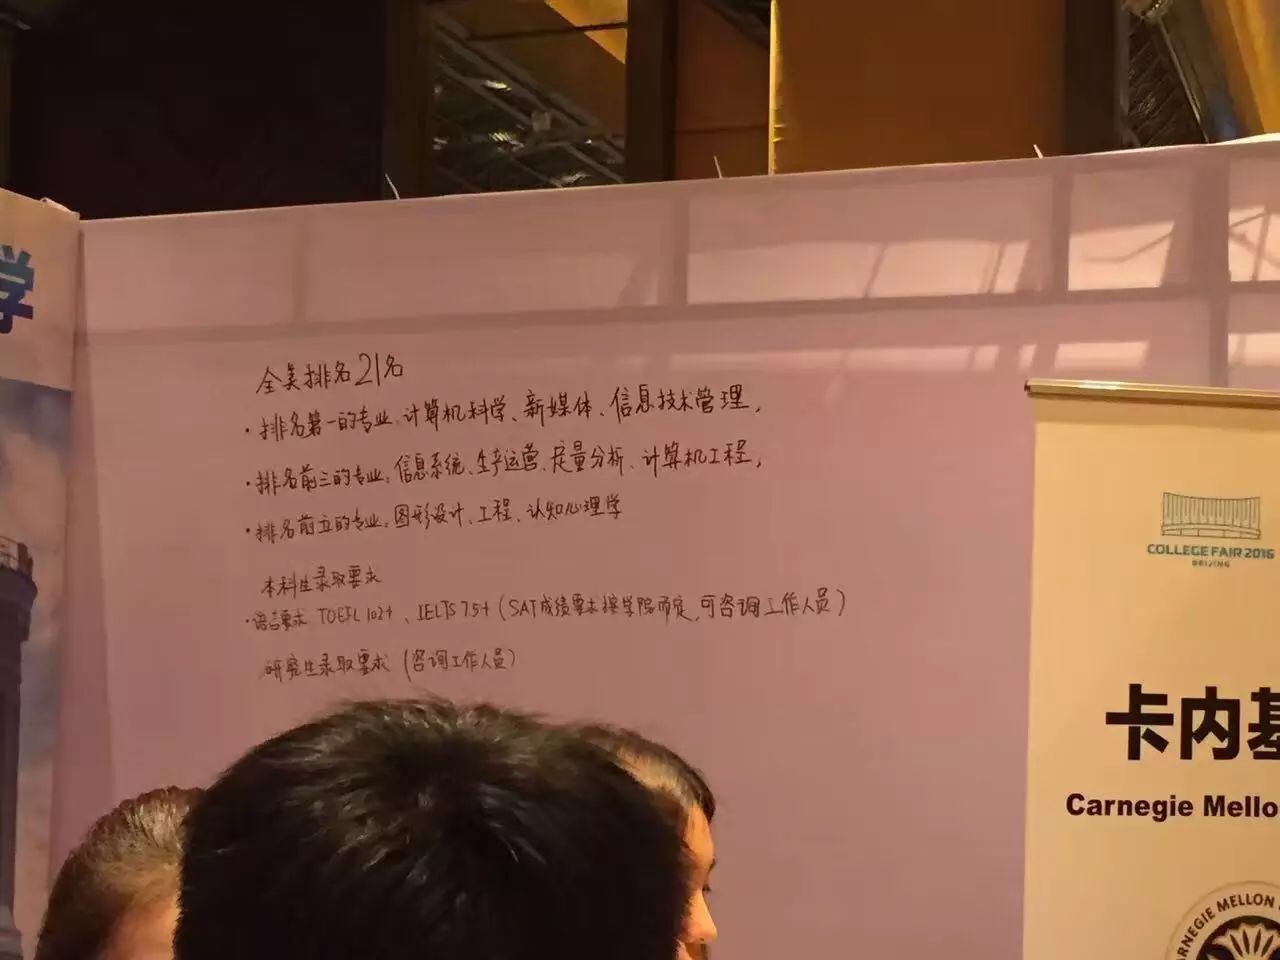 学
全美排名21名
·排名第一的专业:计算机科学、新媒体、信息技术管理,
·排名前三的专业:信息系统、生产运营、定量分析、计算机工程,
·排名前五的专业:图形设计、工程、认知心理学
本科生录取要求
·语言要求 TOEFL 102+、IELTS 7.5+(SAT成绩要求按学院而定,可咨询工作人员)
研究生录取要求(咨询工作人员)
COLLEGE FAIR 2016
BEIJING
卡内基
Carnegie Mello
CARNEGIE MELLON